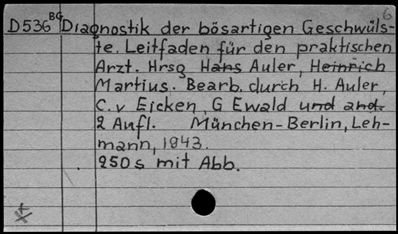 6
D536 BG Diagnostik der bösartigen Geschwüls-
te. Leitfaden für den praktischen
Arzt. Hrsg Hans Auler, Heinrich
Martius. Bearb. durch H. Auler,
C. v Eicken, G Ewald und and.
2 Aufl. München-Berlin, Leh-
mann, 1943.
250 s mit Abb.